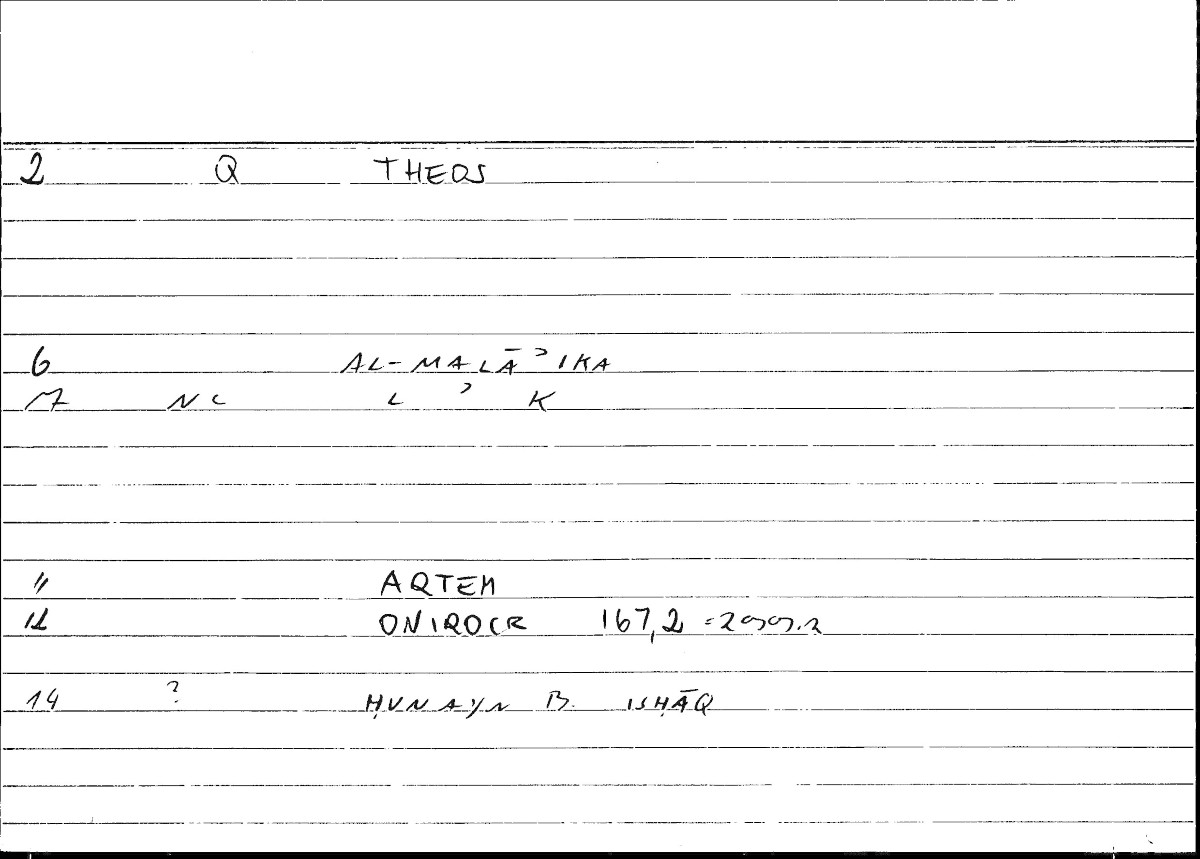 2 Q THEOS
6 AL-MALĀʾIKA
7 NC L ʾ K
11 ARTEM
12 ONIROCR 167,2
14 ? ḤUNAYN B. ISḤĀQ